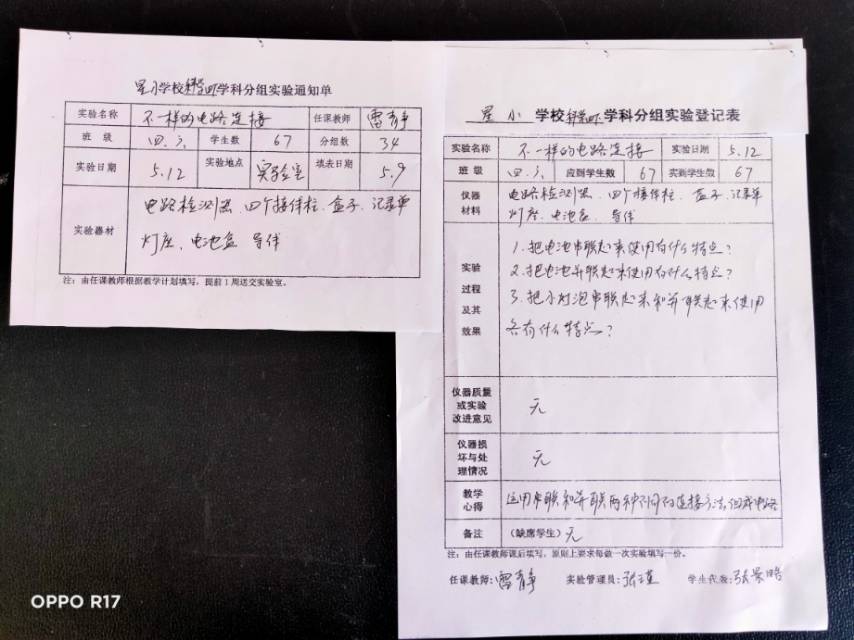 星小学校科学学科分组实验通知单
实验名称 不一样的电路连接 任课教师 雷育静
班 级 四.六 学生数 67 分组数 34
实验日期 5.12 实验地点 实验室 填表日期 5.9
实验器材 电路检测器、四个接件柱、盒子、记录单
灯座、电池盒、导体
注:由任课教师根据教学计划填写,提前1周送交实验室。
星小 学校 学科分组实验登记表
实验名称 不一样的电路连接 实验日期 5.12
班 级 四.六 应到学生数 67 实到学生数 67
仪器材料 电路检测器、四个接件柱、盒子、记录单
灯座、电池盒、导体
实验过程及其效果
1.把电池串联起来使用有什么特点?
2.把电池并联起来使用有什么特点?
3.把小灯泡串联起来和并联起来使用
各有什么特点?
仪器质量或实验改进意见 无
仪器损坏与处理情况 无
教学心得 运用串联和并联两种不同的连接方法组成电路
备注 (缺席学生)无
注:由任课教师课后填写,原则上要求每做一次实验填写一份。
任课教师:雷育静 实验管理员:张瑾 学生代表:张景皓
OPPO R17